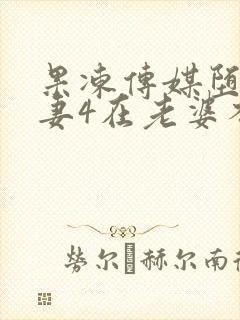 果凍傳媒墮
妻4在老婆
勞尔 赫尔南